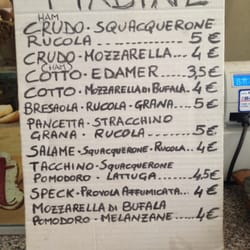 PIADINE
HAM
CRUDO · SQUACQUERONE
RUCOLA 5 €
CRUDO · MOZZARELLA 4 €
(HAM)
COTTO · EDAMER 3,5 €
COTTO · MOZZARELLA DI BUFALA 4 €
BRESAOLA · RUCOLA · GRANA 5 €
PANCETTA · STRACCHINO
GRANA · RUCOLA 5 €
SALAME · SQUACQUERONE · RUCOLA 4 €
TACCHINO · SQUACQUERONE
POMODORO · LATTUGA 4,5 €
SPECK · PROVOLA AFFUMICATA 4 €
MOZZARELLA DI BUFALA
POMODORO · MELANZANE 4 €